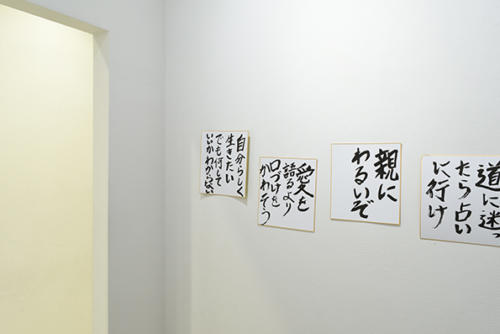 自分らしく
生きたい
でも何して
いいかわからない
愛を
語るより
口づけを
かわそう
親に
わるいぞ
道に迷っ
たら占い
に行け